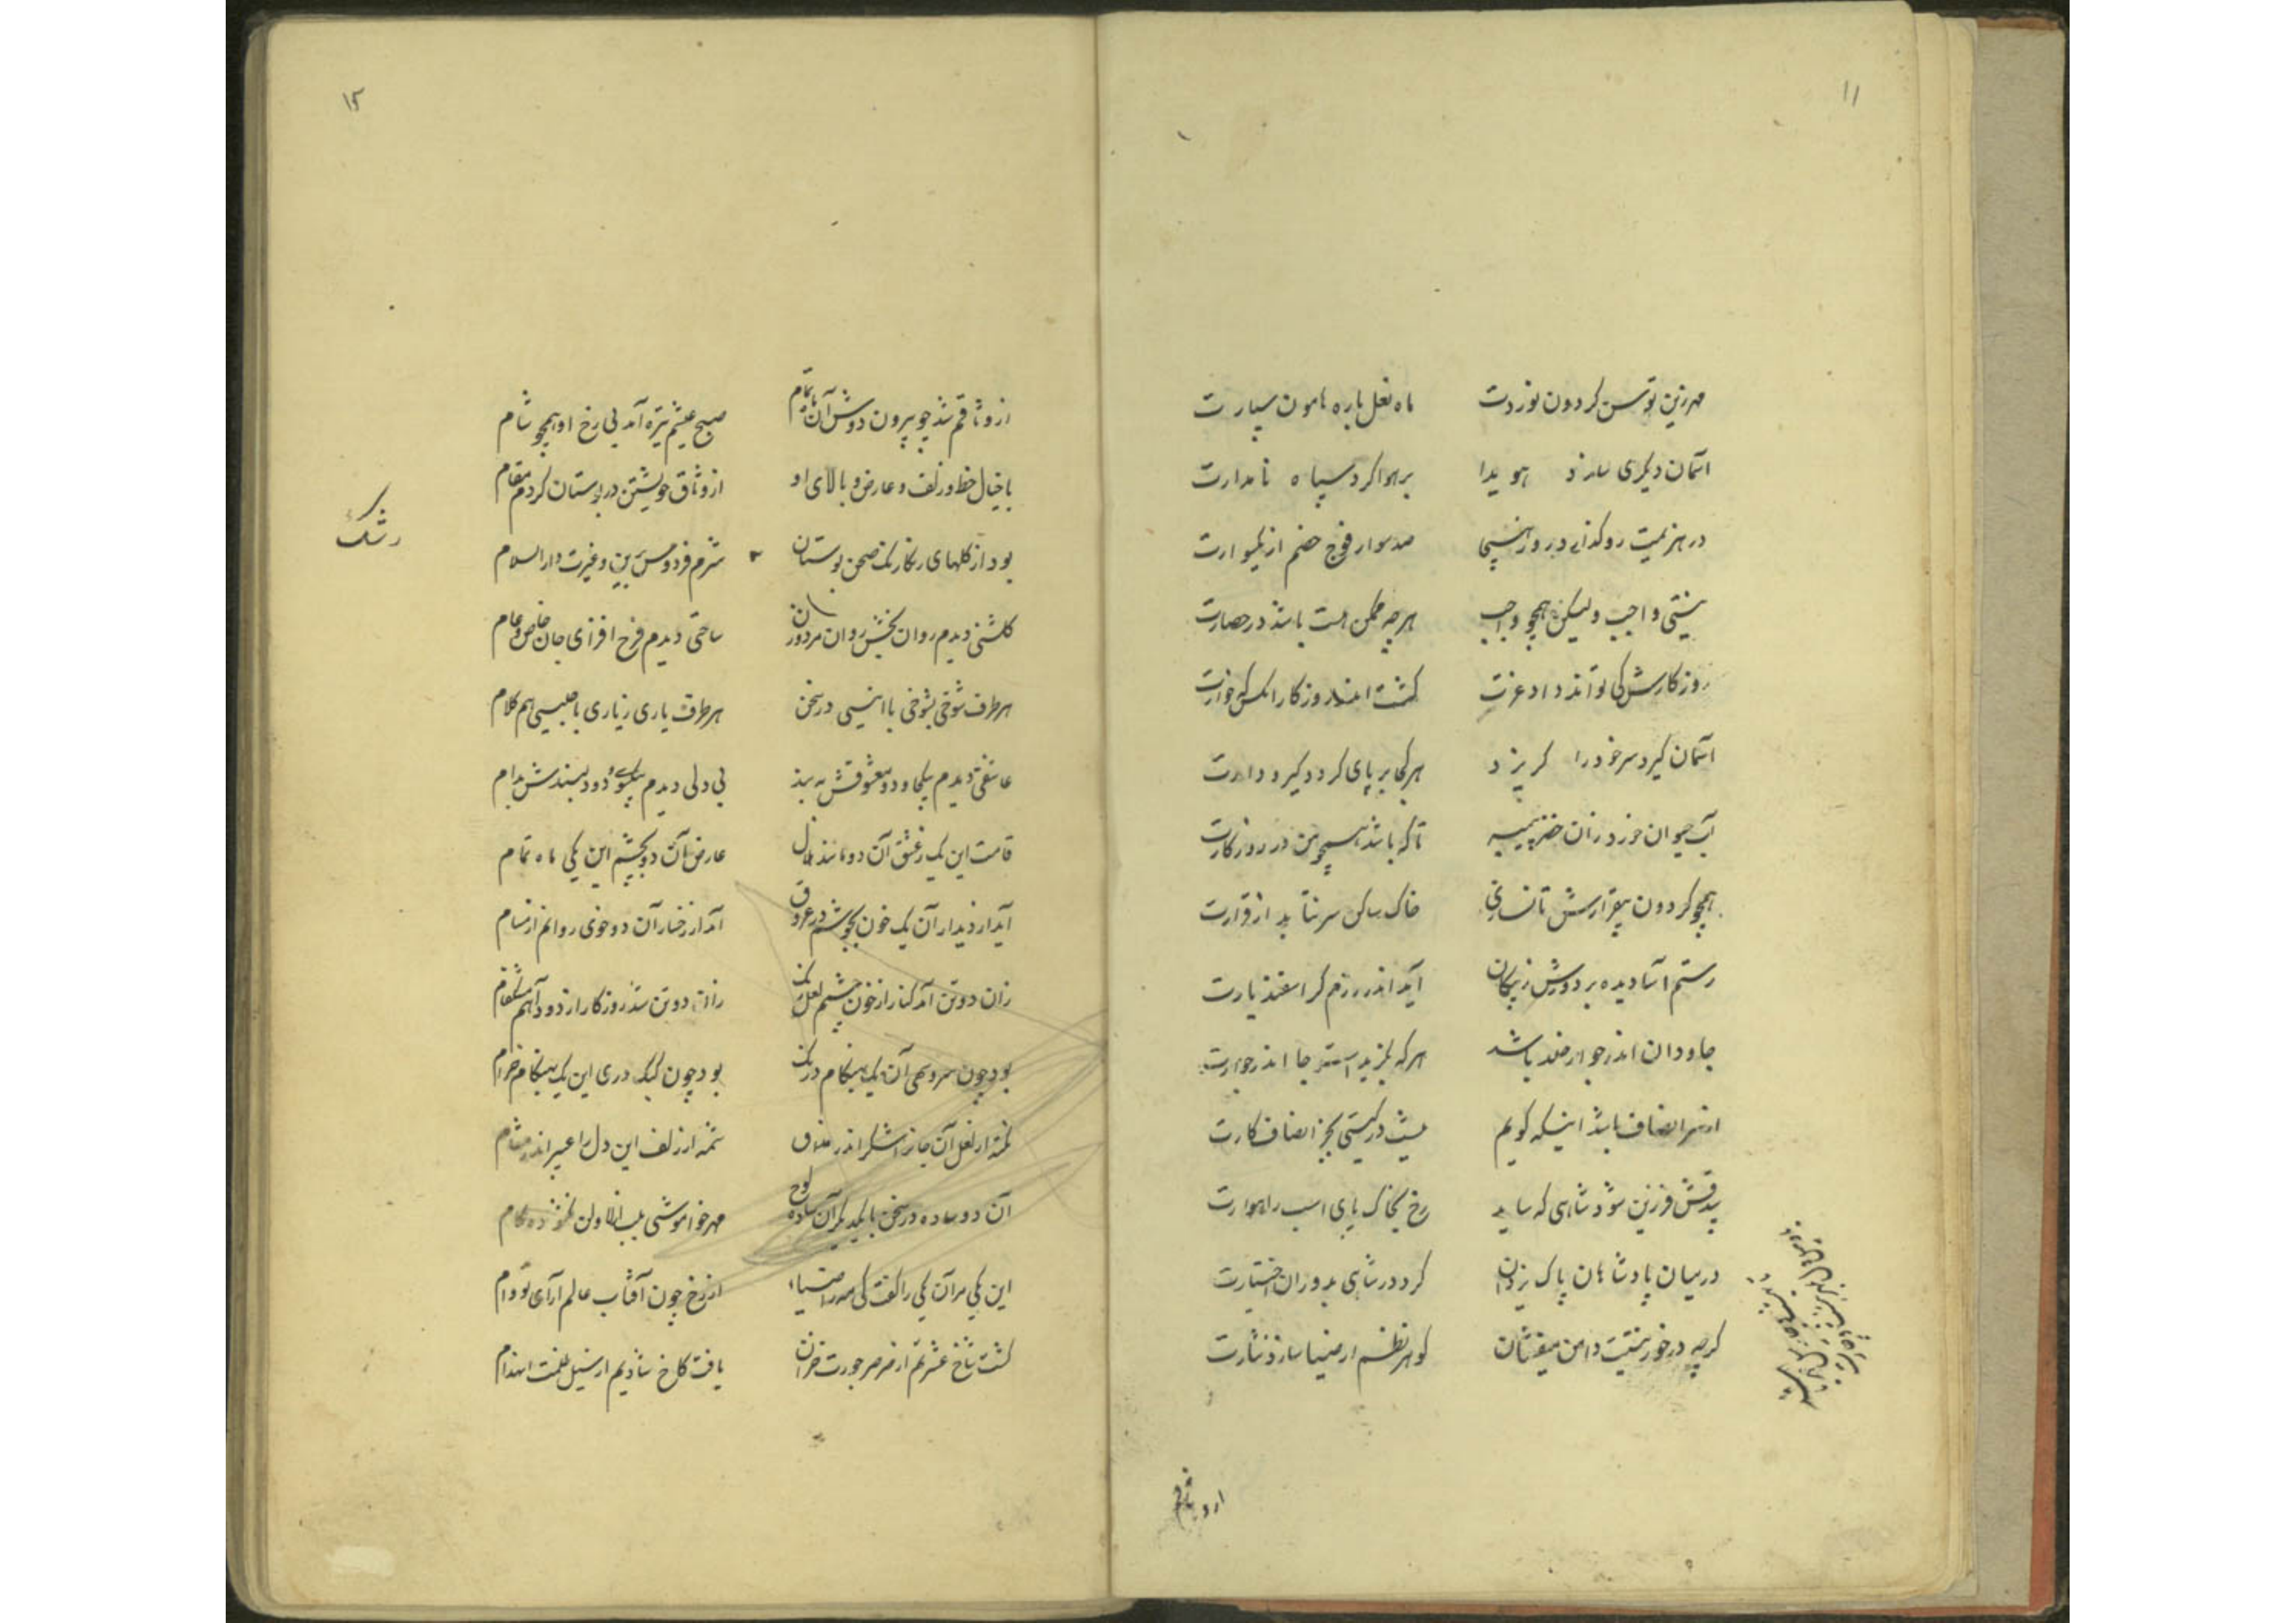 ۱۱
مهر زین توسن کردون نوردت ماه نعل باره هامون سپارت
آسمان دیکری سازد هویدا بر هوا کرد سپاه نامدارت
در هزیمت رو کذارد روز صد سوار فوج خصم از یکسوارت
نیستی واجب ولیکن همچو واجب هر چه ممکن هست باشد در حصارت
روزکارش کی تواند داد عزت کشت اندر روزکار آنکس که خوارت
آسمان کیرد سر خود را کریزد هر کجا بر پای کردد کیر و دارت
آب حیوان خورد زان خضر پیمبر تا که باشد همچو من در روزکارت
همچو کردون بیقرارش تا نسازی خاک ساکن سر نتابد از قرارت
رستم آسا دیده بر دوزش ز پیکان آید اندر رزم کر اسفندیارت
جاودان اندر جوار خلد باشد هر که بکزیدست جا اندر جوارت
از ره انصاف باشد اینکه کویم نیست در کیتی بجز انصاف کارت
بیدقش فرزین شود شاهی که ساید رخ بخاک پای اسب راهوارت
در میان پادشاهان پاک یزدان کرد در شاهی بدوران اختیارت
کرچه در خور نیست دامن میفشان کوهر نظم ار ضیا سازد نثارت
از وثاقم
۱۲
از وثاقم شد چو بیرون دوش آن ماه تمام صبح عیشم تیره آمد بی رخ او همچو شام
با خیال خط و زلف و عارض و بالای او از وثاق خویشتن در بوستان کردم مقام
بود از کلهای رنکارنک صحن بوستان شرم فردوس برین و غیرت دار السلام
رشک
کلشنی دیدم روان بخش روان مرد و زن ساحتی دیدم فرح افزای جان خاص و عام
هر طرف شوخی بشوخی با انیسی در سخن هر طرف یاری ز یاری با جلیسی هم کلام
عاشقی دیدم بیکجا و دو معشوقش به بند بی دلی دیدم بیکسوی و دو دلبندش بدام
قامت این یک ز عشق آن دو مانند هلال عارض آن دو بچشم این یکی ماه تمام
آید از دیدار آن یک خون بجوشم در عروق آمد از رخسار آن دو خوی روانم از مسام
زان دو تن آمد کنار از خون چشمم لعل رنک زان دو تن شد روزکار از دود آهم مشکفام
بود چون سرو سهی آن یک بهنکام درنک بود چون کبک دری این یک بهنکام خرام
نمه از لعل آن جانرا شکر اندر مذاق شمه از زلف این دل را عبیر اندر مشام
آن دو ساده در سخن با یکدیکر آن ساده لوح مهر خواموشی بلب
این یکی مر آن یکی را کفت کی مه را ضیاء از رخ چون آفتاب عالم آرای تو وام
کشت شاخ عشرتم از صرصر جورت خزان یافت کاخ شادیم از سیل ظلمت انهدام